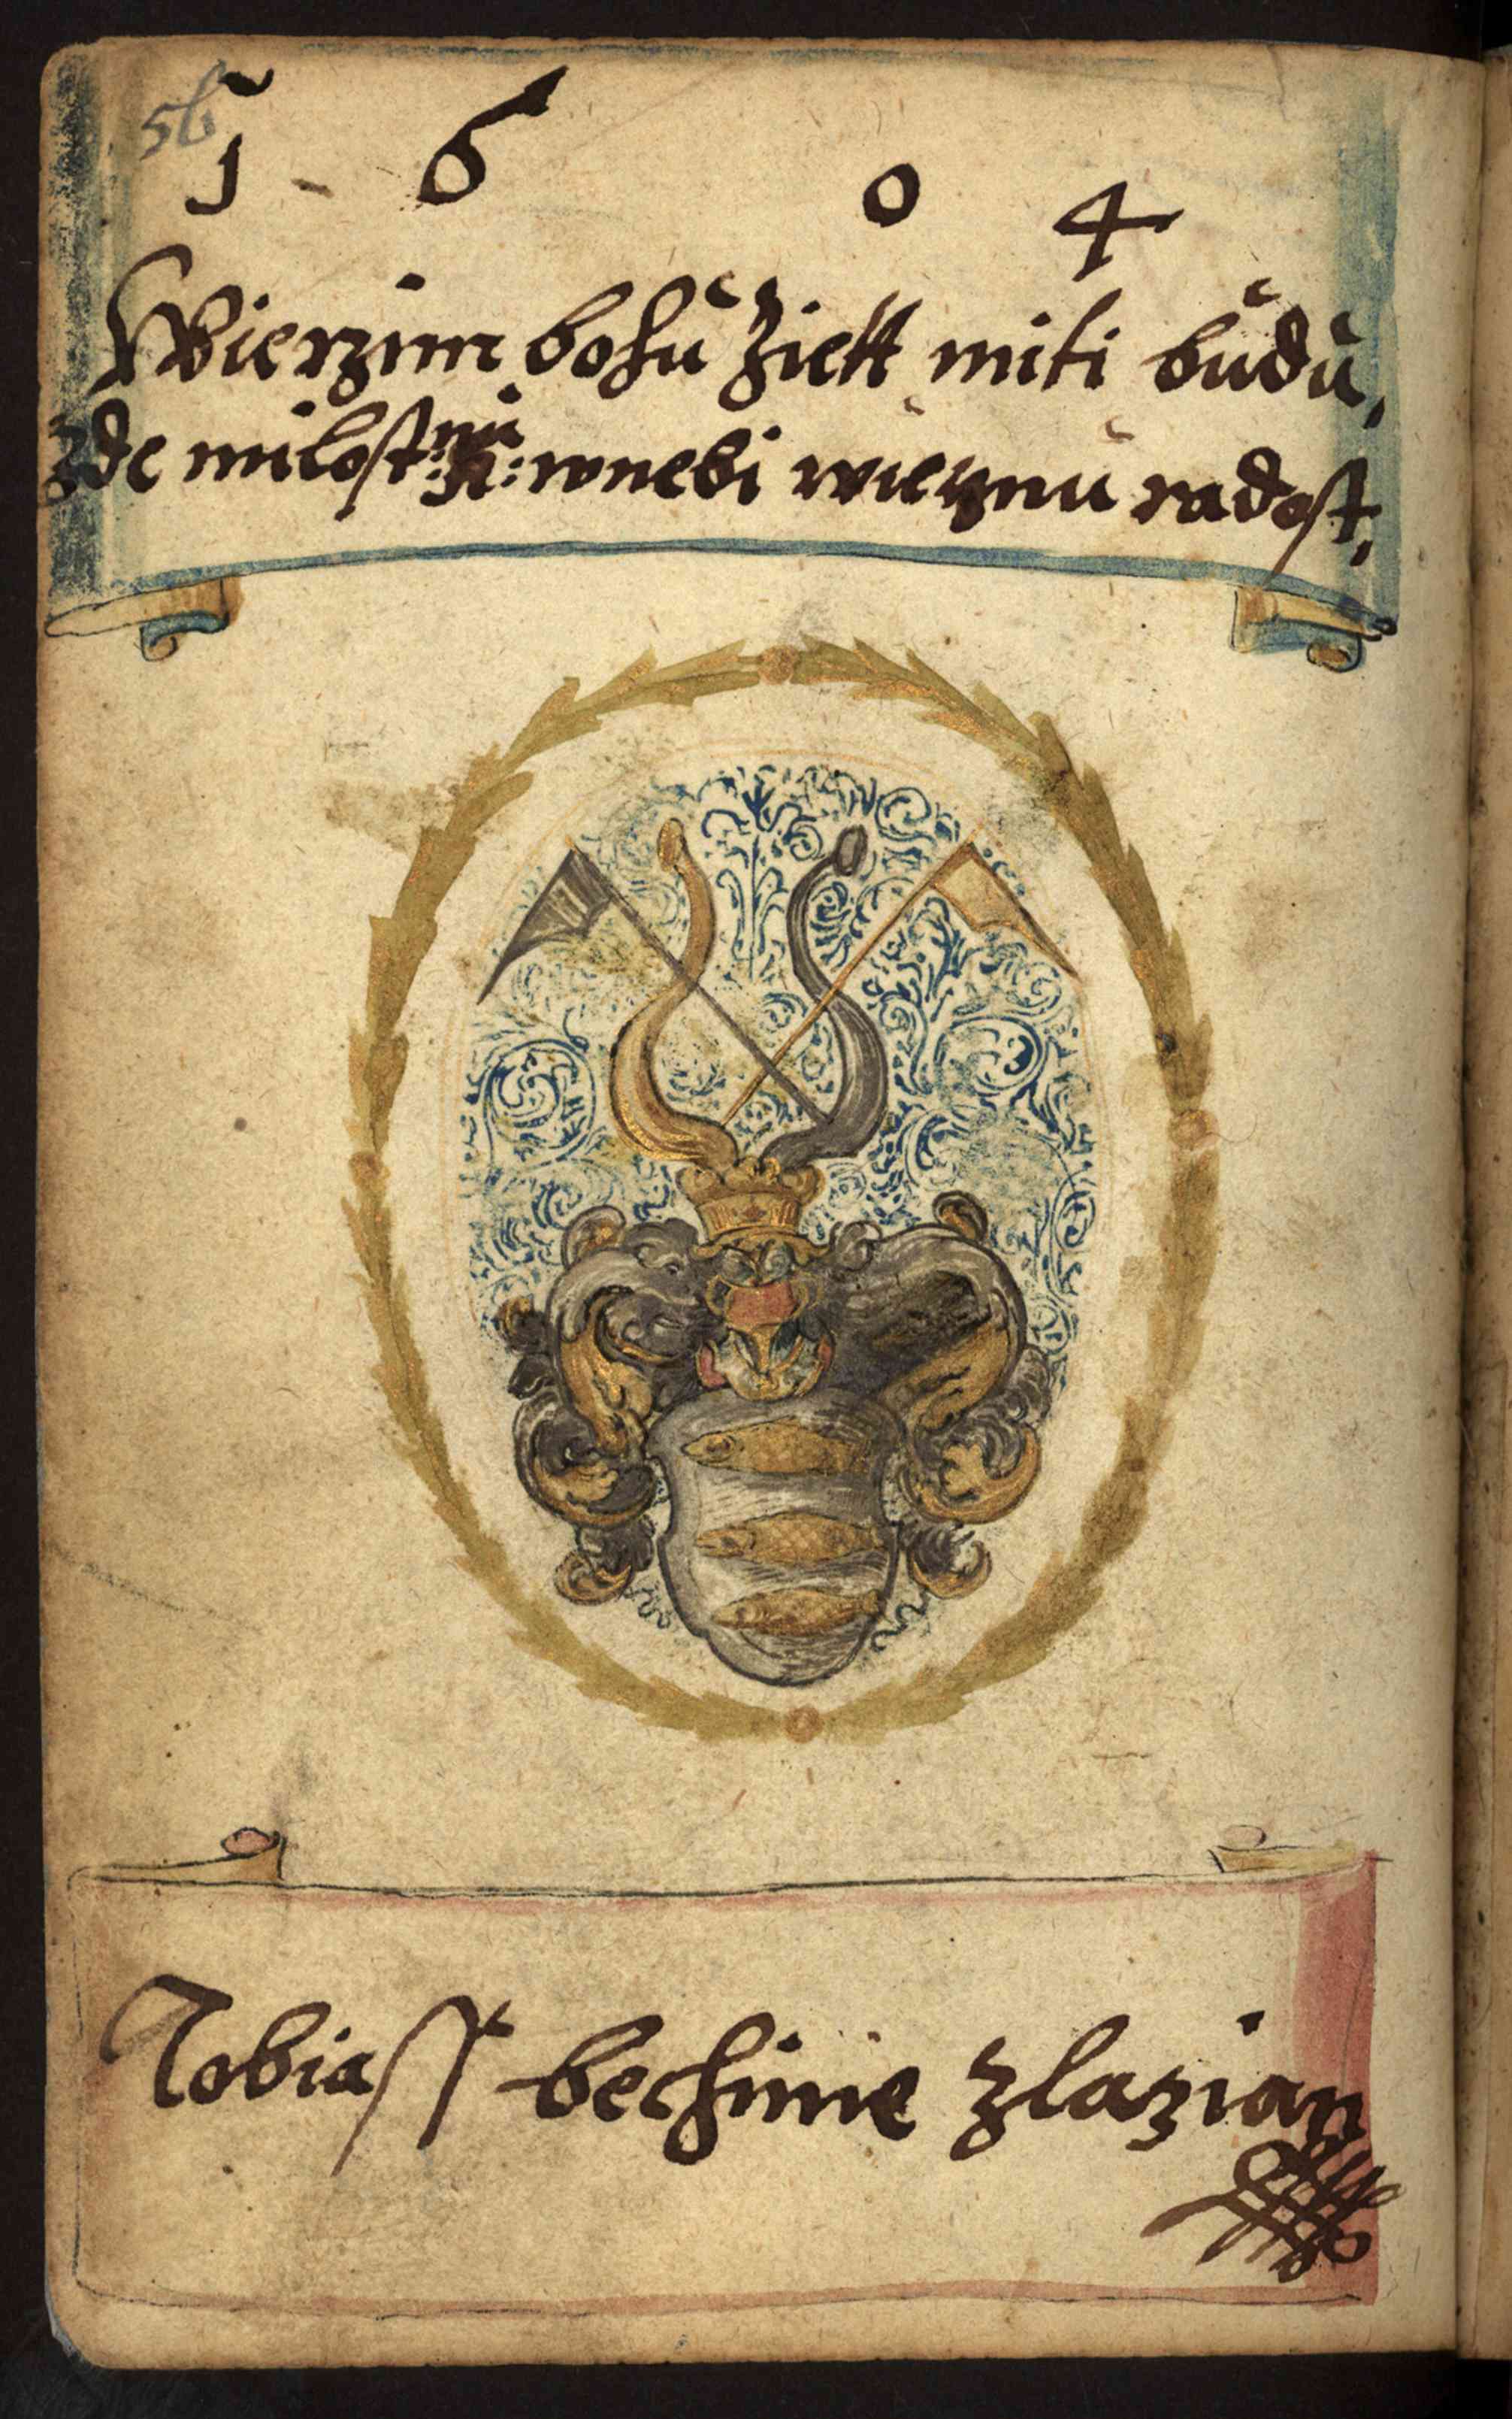 5b
1 6 0 4
Wierzim bohu ziett miti budu,
zde milost: wnebi wiecznu radost,
Tobiass bechinie zlazian